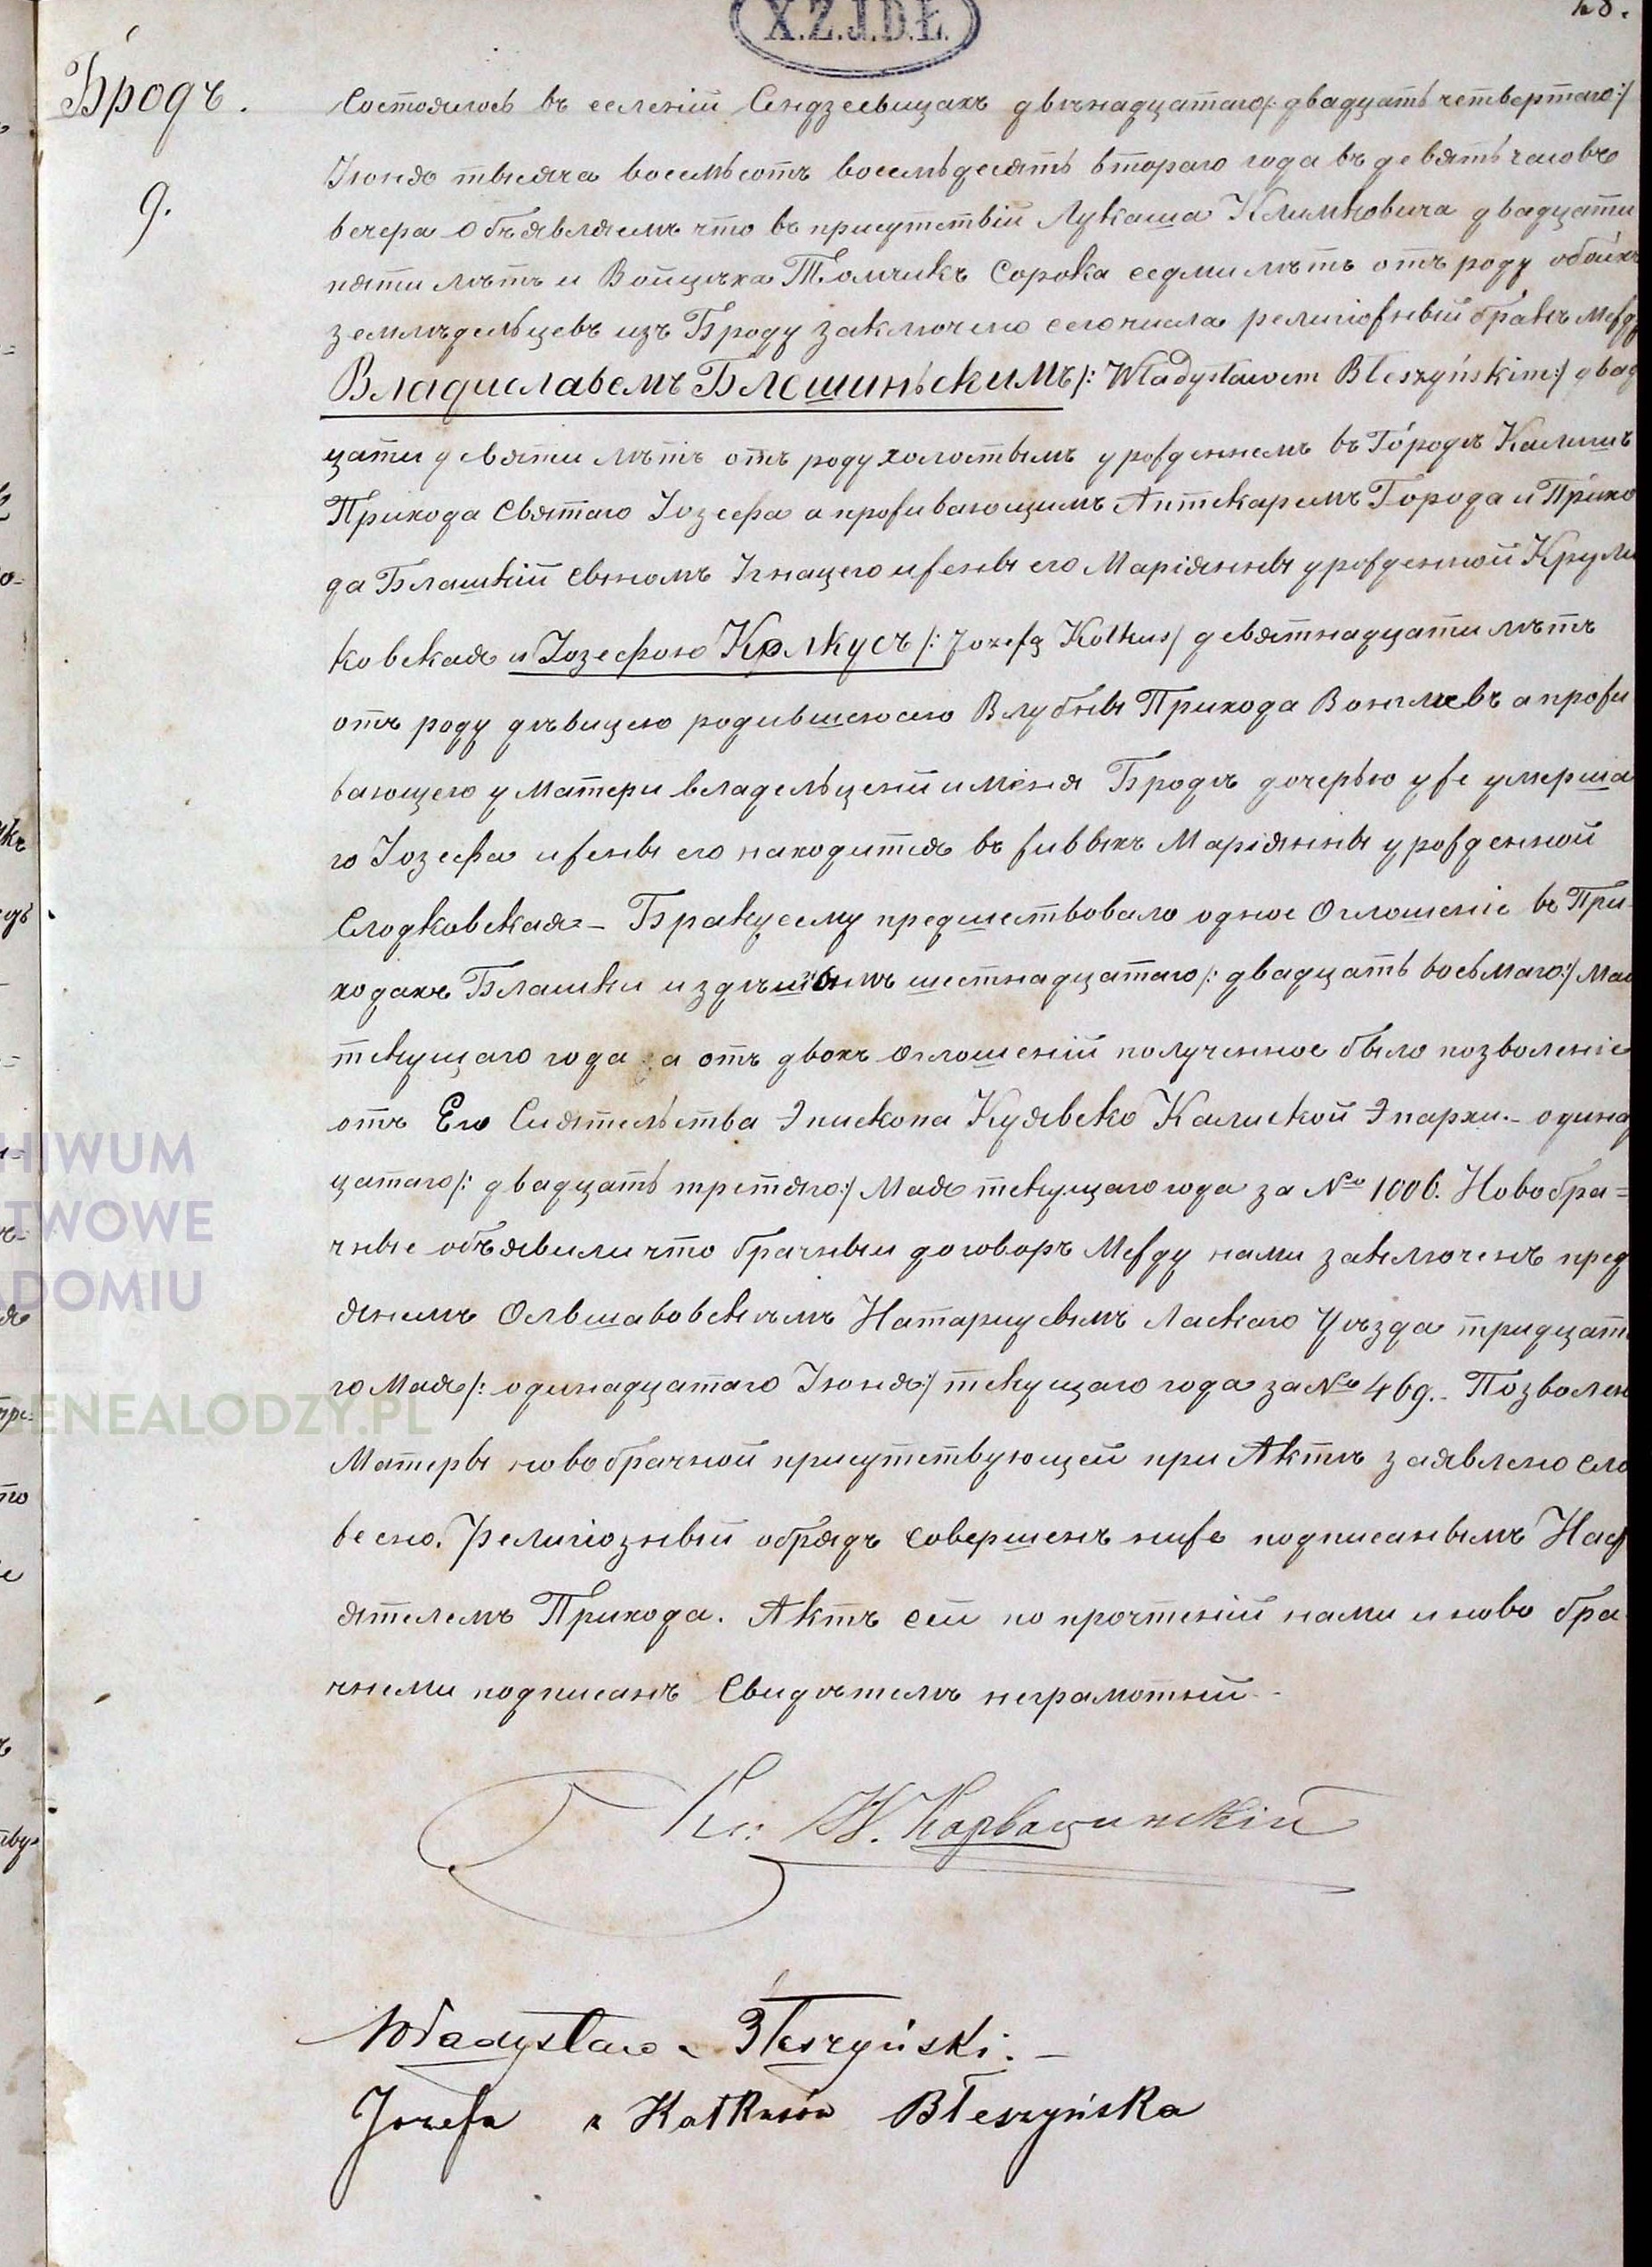 X.Z.J.D.Ł.
28.
Бродъ.
9.
Состоялось въ селеніи Сендзеевицахъ двѣнадцатаго/: двадцать четвертаго:/
Іюня тысяча восемьсотъ восемьдесять втораго года въ девять часовъ
вечера Объявляемъ что въ присутствіи Лукаша Климковича двадцати
пяти лѣтъ и Войцѣха Томчикъ Сорока седми лѣтъ отъ роду обоихъ
землѣдельцевъ изъ Броду заключено сего числа религіозный бракъ Между
Владиславемъ Блешиньскимъ/: Władysławem Błeszyńskim:/ двад
цати девяти лѣтъ отъ роду холостымъ урожденнемъ въ Городѣ Калишѣ
Прихода Святаго Іозефа а проживающимъ Аптекаремъ Города и Прихо
да Блашкій сыномъ Игнацего и жены его Маріянны урожденной Крули
ковская и Іозефою Колкусъ /: Jozefą Kołkus/ девятнадцати лѣтъ
отъ роду дѣвицею родившеюсю Влубны Прихода Вонглевъ а прожи
вающею у Матери владельцени имѣня Бродъ дочерью уже умерша
го Іозефа и жены его находится въ живыхъ Маріянны урожденной
Слодковская – Браку сему предшествовало одное Оглошеніе въ При-
ходахъ Блашки и здѣшнымъ шестнадцатаго/: двадцать восьмаго:/ Мая
текущаго года а отъ двохъ оглошеній полученное было позволеніе
отъ Его Сиятельства Эпископа Куявско Калиской Эпархи. – одинад
цатаго/: двадцать третяго:/ Мая текущаго года за № 1006. Новобра=
чные объявили что брачный договоръ Между нами заключенъ пред
янемъ Ольшавовскѣмъ Натаріусымъ Ласкаго Уѣзда тридцата
го Мая/: одинадцатаго Іюня:/ текущаго года за № 469. Позволен
Матеры новобрачной присутствующей при Актѣ заявлено сло
весно. Религіозный обрядъ совершенъ ниже подписанымъ Наст
ятелемъ Прихода. Актъ сей по прочтеній нами и ново бра
чнеми подписанъ Свидѣтелѣ неграмотній –
Кс: W. Карвацинскій
Władysław Błeszyński. –
Jozefa z Kołkusów Błeszyńska
HIWUM
TWOWE
ADOMIU
GENEALODZY.PL